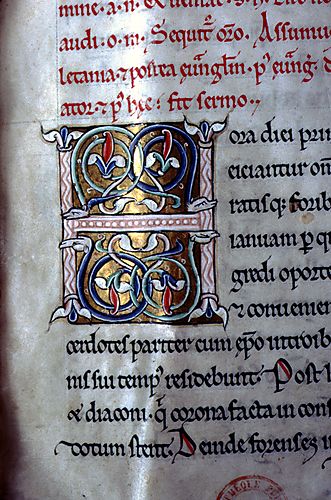 mine. a. ii.
audi. o. iii. Sequit͛ oro. Assumu
letania. ⁊ postea euangliu. p͛ euang. d
ator. ⁊ p͛ hec. fit sermo.
Hora diei prim
eiciantur om
ratisq; forib
ianuam p̱ qu
gredi oport
⁊ conuenien
cerdotes pariter cum epo introib
nis sui temp͛ residebunt. Post
diaconi. q̄ corona facta in cons
dotum stent. Deinde forenses in